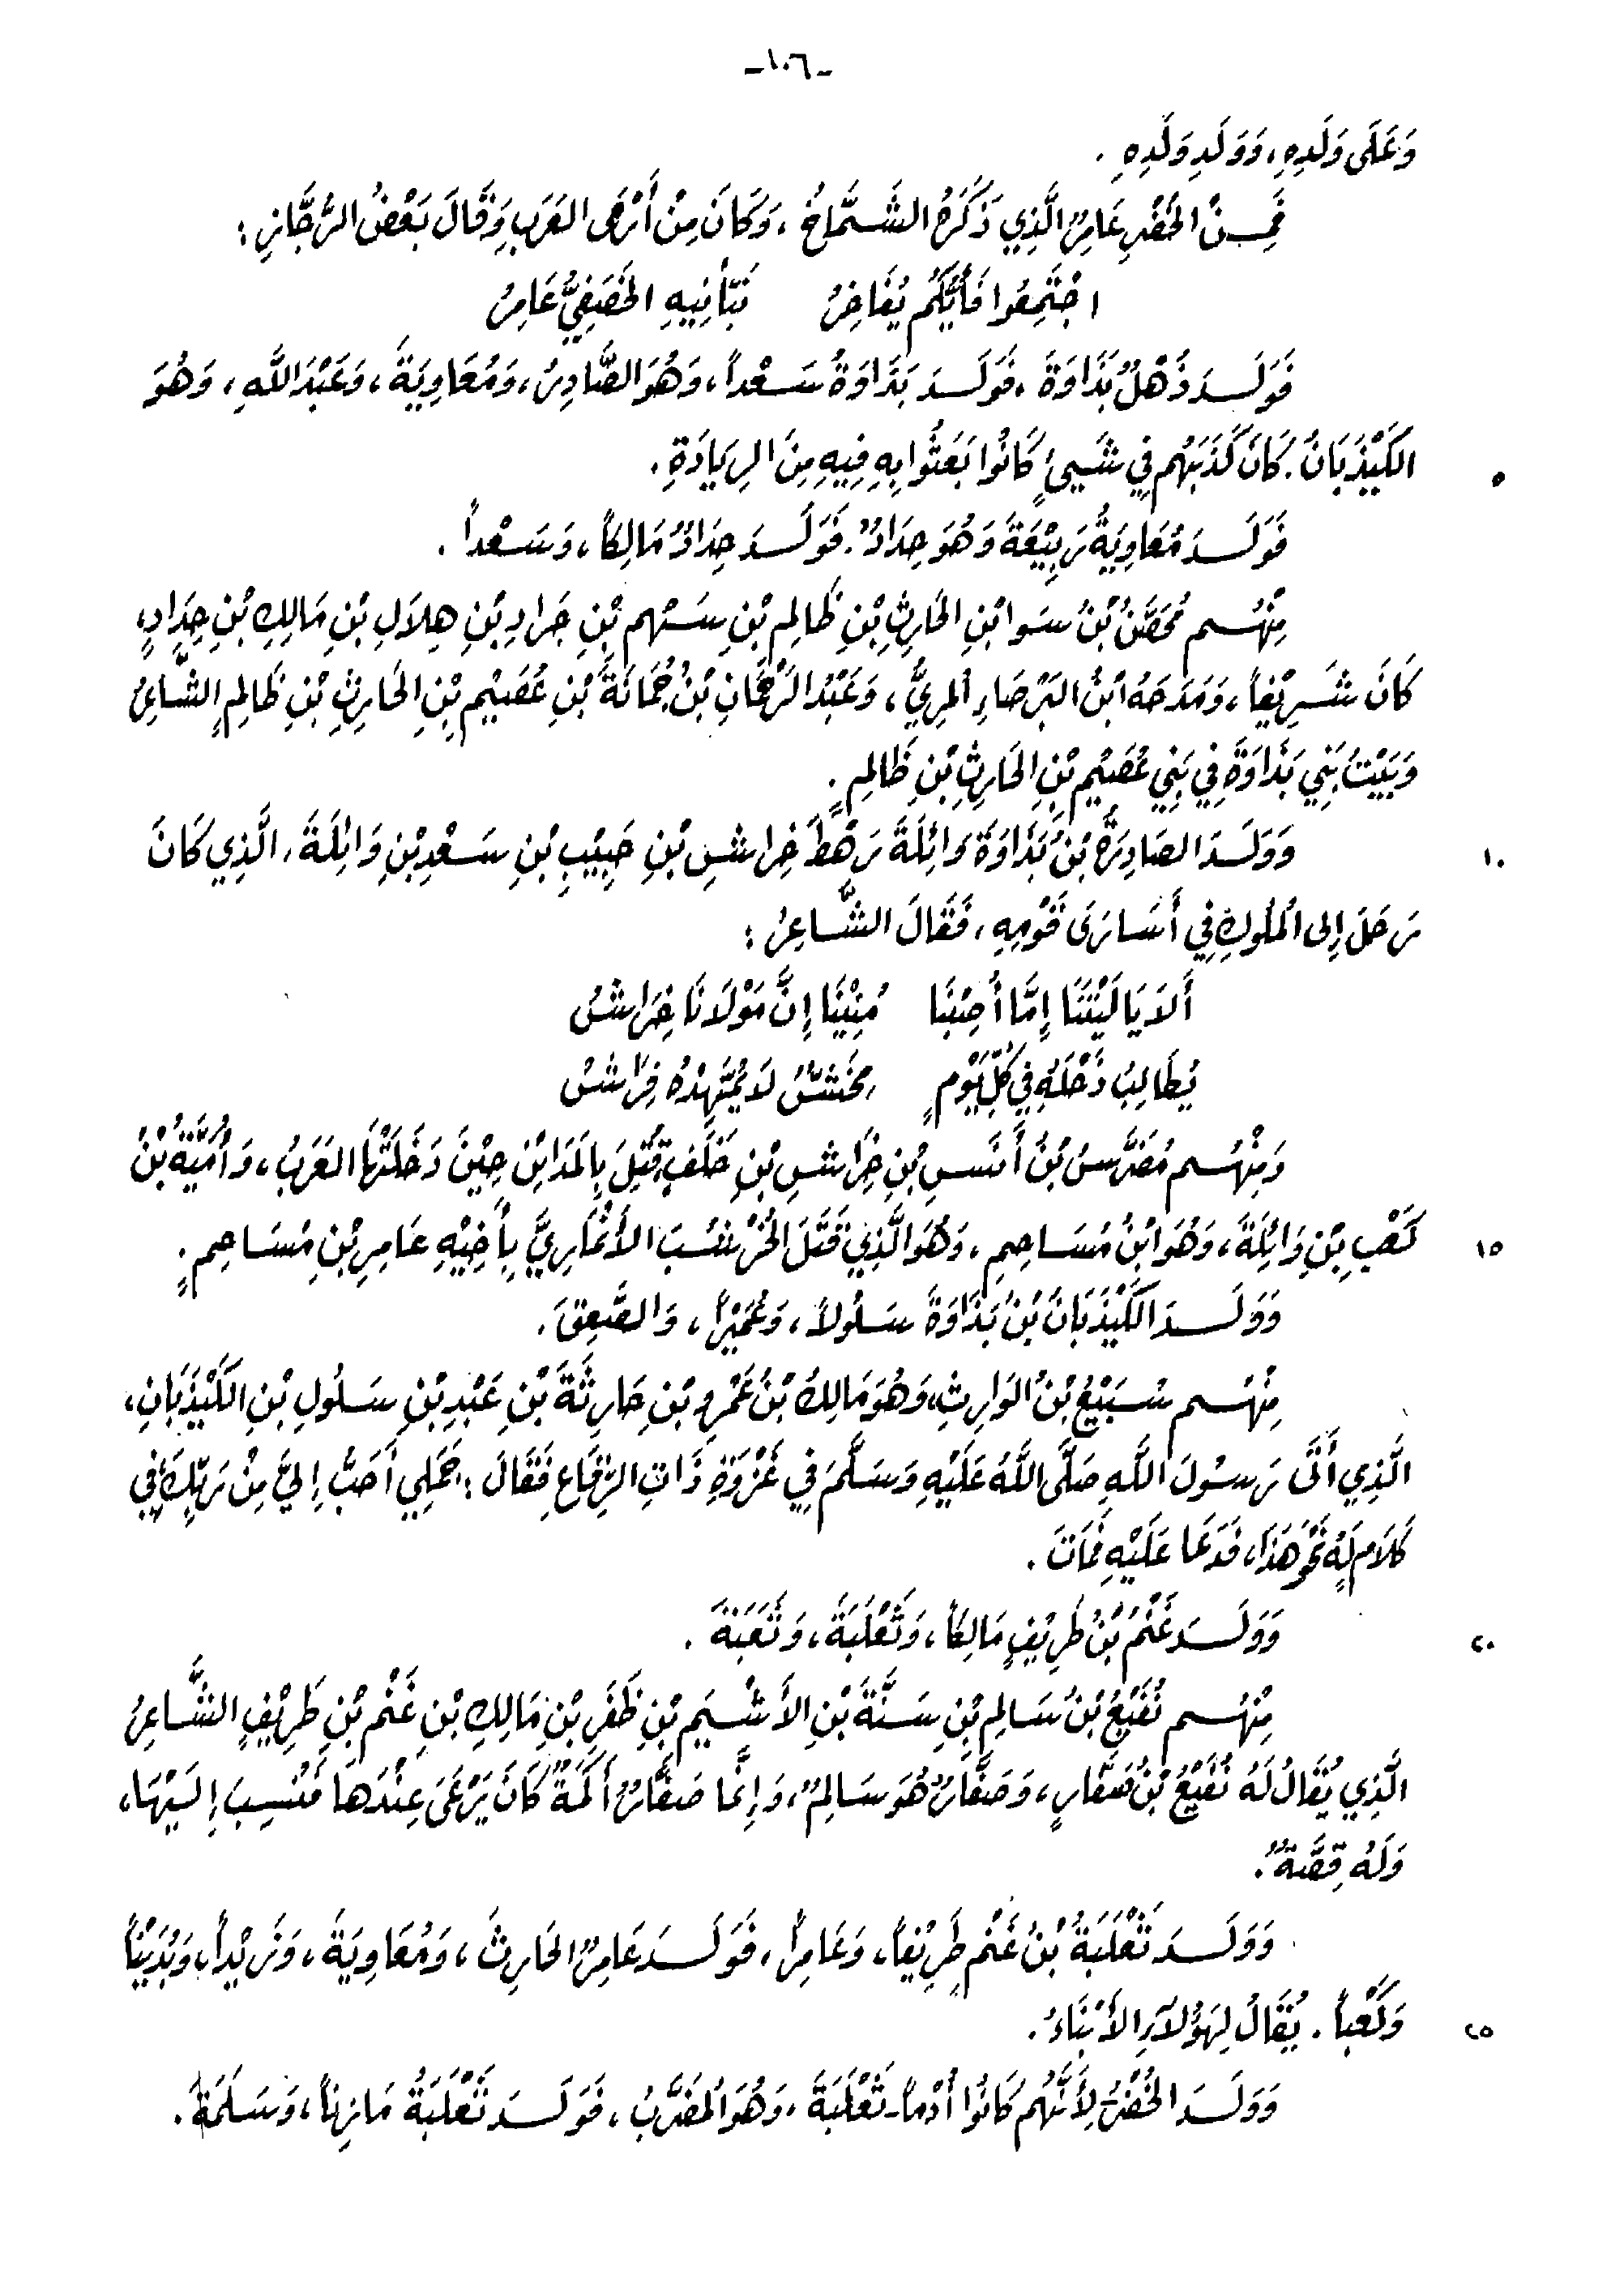 -١٠٦-
وَعَلَى وَلَدِهِ، وَوَلَدِ وَلَدِهِ .
فَمِنَ الخُضْرِ عَامِرٌ الَّذِي ذَكَرَهُ الشَّمَّاخُ ، وَكَانَ مِنْ أَرْمَى العَرَبِ، وَقَالَ بَعْضُ الرُّجَّازِ :
اجْتَمِعُوا فَأَيُّكُم يُفَاخِرُ نَبَّأَنِيهِ الخَصَفِيُّ عَامِرُ
فَوَلَدَ ذُهْلٌ بَذَاوَةَ ، فَوَلَدَ بَذَاوَةُ سَعْداً ، وَهُوَ الصَّادِرُ ، وَمُعَاوِيَةَ ، وَعَبْدَ اللَّهِ ، وَهُوَ
الكَيْذَبَانُ . كَانَ كَذَبَهُم فِي شَيءٍ كَانُوا بَعَثُوا بِهِ فِيهِ مِنَ الرِيَادَةِ .
٥
فَوَلَدَ مُعَاوِيَةُ رَبِيْعَةَ وَهُوَ حِدَادٌ . فَوَلَدَ حِدَادٌ مَالِكاً ، وَسَعْداً .
مِنْهُم مُحَصَّنُ بْنُ سَوا بْنِ الحَارِثِ بْنِ ظَالِمِ بْنِ سَهْمِ بْنِ جَرَادِ بْنِ هِلاَلِ بْنِ مَالِكِ بْنِ حِدَادٍ ،
كَانَ شَرِيْفاً ، وَمَدَحَهُ ابْنُ البَرْصَاءِ المِرِيُّ ، وَعَبْدُ الرَّحْمَانِ بْنُ جُمَانَةَ بْنِ عُصَيْمِ بْنِ الحَارِثِ بْنِ ظَالِمٍ الشَّاعِرُ
وَبَيْتُ بَنِي بَذَاوَةَ فِي بَنِي عُصَيْمِ بْنِ الحَارِثِ بْنِ ظَالِمٍ .
وَوَلَدَ الصَادِرَةُ بْنُ بَذَاوَةَ وَائِلَةَ رَهْطَ خِرَاشِ بْنِ حَبِيْبِ بْنِ سَعْدِ بْنِ وَائِلَةَ ، الَّذِي كَانَ
١٠
رَحَلَ إِلى المُلُوكِ فِي أَسَارَى قَوْمِهِ ، فَقَالَ الشَّاعِرُ :
أَلاَ يَا لَيْتَنَا إِمَّا أُصِبْنَا مُنِيْنَا إِنَّ مَوْلاَنَا خِرَاشُ
يُطَالِبُ ذَحْلَهُ فِي كُلِّ يَوْمٍ مِخَشٌّ لاَ يُمَهِّدُهُ فِرَاشُ
وَمِنْهُم مُضَرِّسُ بْنُ أَنَسِ بْنِ خِرَاشِ بْنِ خَلَفٍ قُتِلَ بِالمَدَائِنِ حِيْنَ دَخَلَتْهَا العَرَبُ ، وَأُمَيَّةُ بْنُ
كَعْبِ بْنِ وَائِلَةَ ، وَهُوَ ابْنُ مُسَاحِمٍ ، وَهُوَ الَّذِي قَتَلَ الخُرْشُبَ الأَنْمَارِيَّ بِأَخِيْهِ عَامِرِ بْنِ مُسَاحِمٍ .
١٥
وَوَلَدَ الكَيْذَبَانُ بْنُ بَذَاوَةَ سَلُولاً ، وَعُمَيْراً ، وَالصَّعِقَ .
مِنْهُم سُبَيْعُ بْنُ الوَارِثِ ، وَهُوَ مَالِكُ بْنُ عَمْرِو بْنِ حَارِثَةَ بْنِ عَبْدِ بْنِ سَلُولِ بْنِ الكَيْذَبَانِ ،
الَّذِي أَتَى رَسُولَ اللَّهِ صَلَّى اللَّهُ عَلَيْهِ وَسَلَّمَ فِي غَزْوَةِ ذَاتِ الرِّقَاعِ فَقَالَ : جَمَلِي أَحَبُّ إِليَّ مِنْ رَبِّكَ فِي
كَلاَمٍ لَهُ نَحْوَ هَذَا ، فَدَعَا عَلَيْهِ فَمَاتَ .
وَوَلَدَ غَنْمُ بْنُ طَرِيْفٍ مَالِكاً ، وَثَعْلَبَةَ ، وَثَعَبَةَ .
٢٠
مِنْهُم نُفَيْعُ بْنُ سَالِمِ بْنِ سَنَّةَ بْنِ الأَشْيَمِ بْنِ ظَفَرِ بْنِ مَالِكِ بْنِ غَنْمِ بْنِ طَرِيْفٍ الشَّاعِرُ
الَّذِي يُقَالُ لَهُ نُفَيْعُ بْنُ صَفَّارٍ ، وَصَفَّارٌ هُوَ سَالِمٌ ، وَإِنَّمَا صَفَّارٌ أَكَمَةٌ كَانَ يَرْعَى عِنْدَهَا فَنُسِبَ إِلَيْهَا ،
وَلَهُ قِصَّةٌ .
وَوَلَدَ ثَعْلَبَةُ بْنُ غَنْمٍ طَرِيْفاً ، وَعَامِراً ، فَوَلَدَ عَامِرٌ الحَارِثَ ، وَمُعَاوِيَةَ ، وَزَيْداً ، وَبُدَيْناً
وَكَعْباً . يُقَالُ لِهَؤُلاَءِ الأَبْنَاءُ .
٢٥
وَوَلَدَ الخُضْرُ لِأَنَّهُم كَانُوا أُدْماً - ثَعْلَبَةَ ، وَهُوَ المَضْرَبُ ، فَوَلَدَ ثَعْلَبَةُ مَازِناً ، وَسَلَمَةَ .